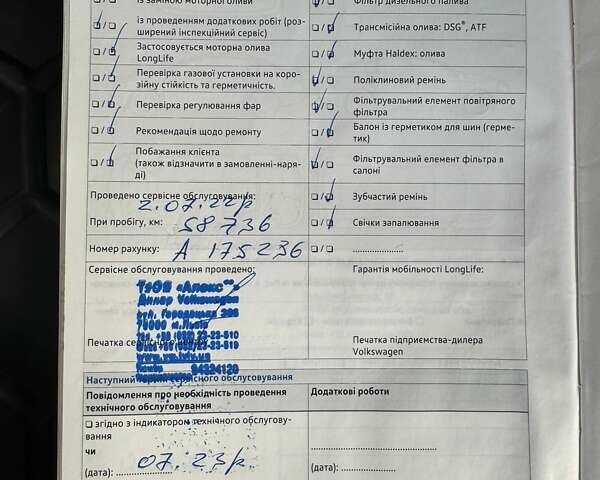 із заміною моторної оливи
Фільтр дизельного палива
із проведенням додаткових робіт (роз-
ширений інспекційний сервіс)
Трансмісійна олива: DSG®, ATF
Застосовується моторна олива
LongLife
Муфта Haldex: олива
Перевірка газової установки на коро-
зійну стійкість та герметичність.
Поліклиновий ремінь
Перевірка регулювання фар
Фільтрувальний елемент повітряного
фільтра
Рекомендація щодо ремонту
Балон із герметиком для шин (герме-
тик)
Побажання клієнта
(також відзначити в замовленні-наря-
ді)
Фільтрувальний елемент фільтра в
салоні
Проведено сервісне обслуговування:
2.07.22р
Зубчастий ремінь
При пробігу, км: 58736
Свічки запалювання
Номер рахунку: А 175236
☐/☐ ....................
Сервісне обслуговування проведено:
Гарантія мобільності LongLife:
ТзОВ «Алекс»
Дилер Volkswagen
вул. Городоцька
79000 м. Львів
Печатка сервісного
Печатка підприємства-дилера
Volkswagen
Наступний сервісного обслуговування
Повідомлення про необхідність проведення
технічного обслуговування
Додаткові роботи
☐ згідно з індикатором технічного обслугову-
вання
чи
(дата): 07.23р.
(дата): ..............